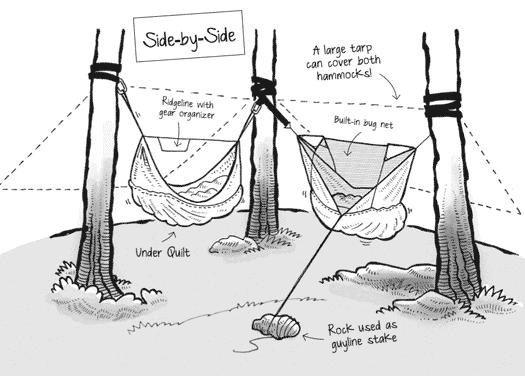 Side-by-Side
A large tarp
can cover both
hammocks!
Ridgeline with
gear organizer
Built-in bug net
Under Quilt
Rock used as
guyline stake